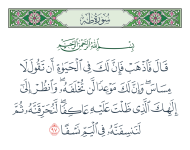 سُورَةُ طه
بِسْمِ ٱللَّهِ ٱلرَّحْمَٰنِ ٱلرَّحِيمِ
قَالَ فَٱذْهَبْ فَإِنَّ لَكَ فِى ٱلْحَيَوٰةِ أَن تَقُولَ لَا
مِسَاسَ ۖ وَإِنَّ لَكَ مَوْعِدًا لَّن تُخْلَفَهُۥ ۖ وَٱنظُرْ إِلَىٰٓ
إِلَٰهِكَ ٱلَّذِى ظَلْتَ عَلَيْهِ عَاكِفًا ۖ لَّنُحَرِّقَنَّهُۥ ثُمَّ
لَنَنسِفَنَّهُۥ فِى ٱلْيَمِّ نَسْفًا ٩٧